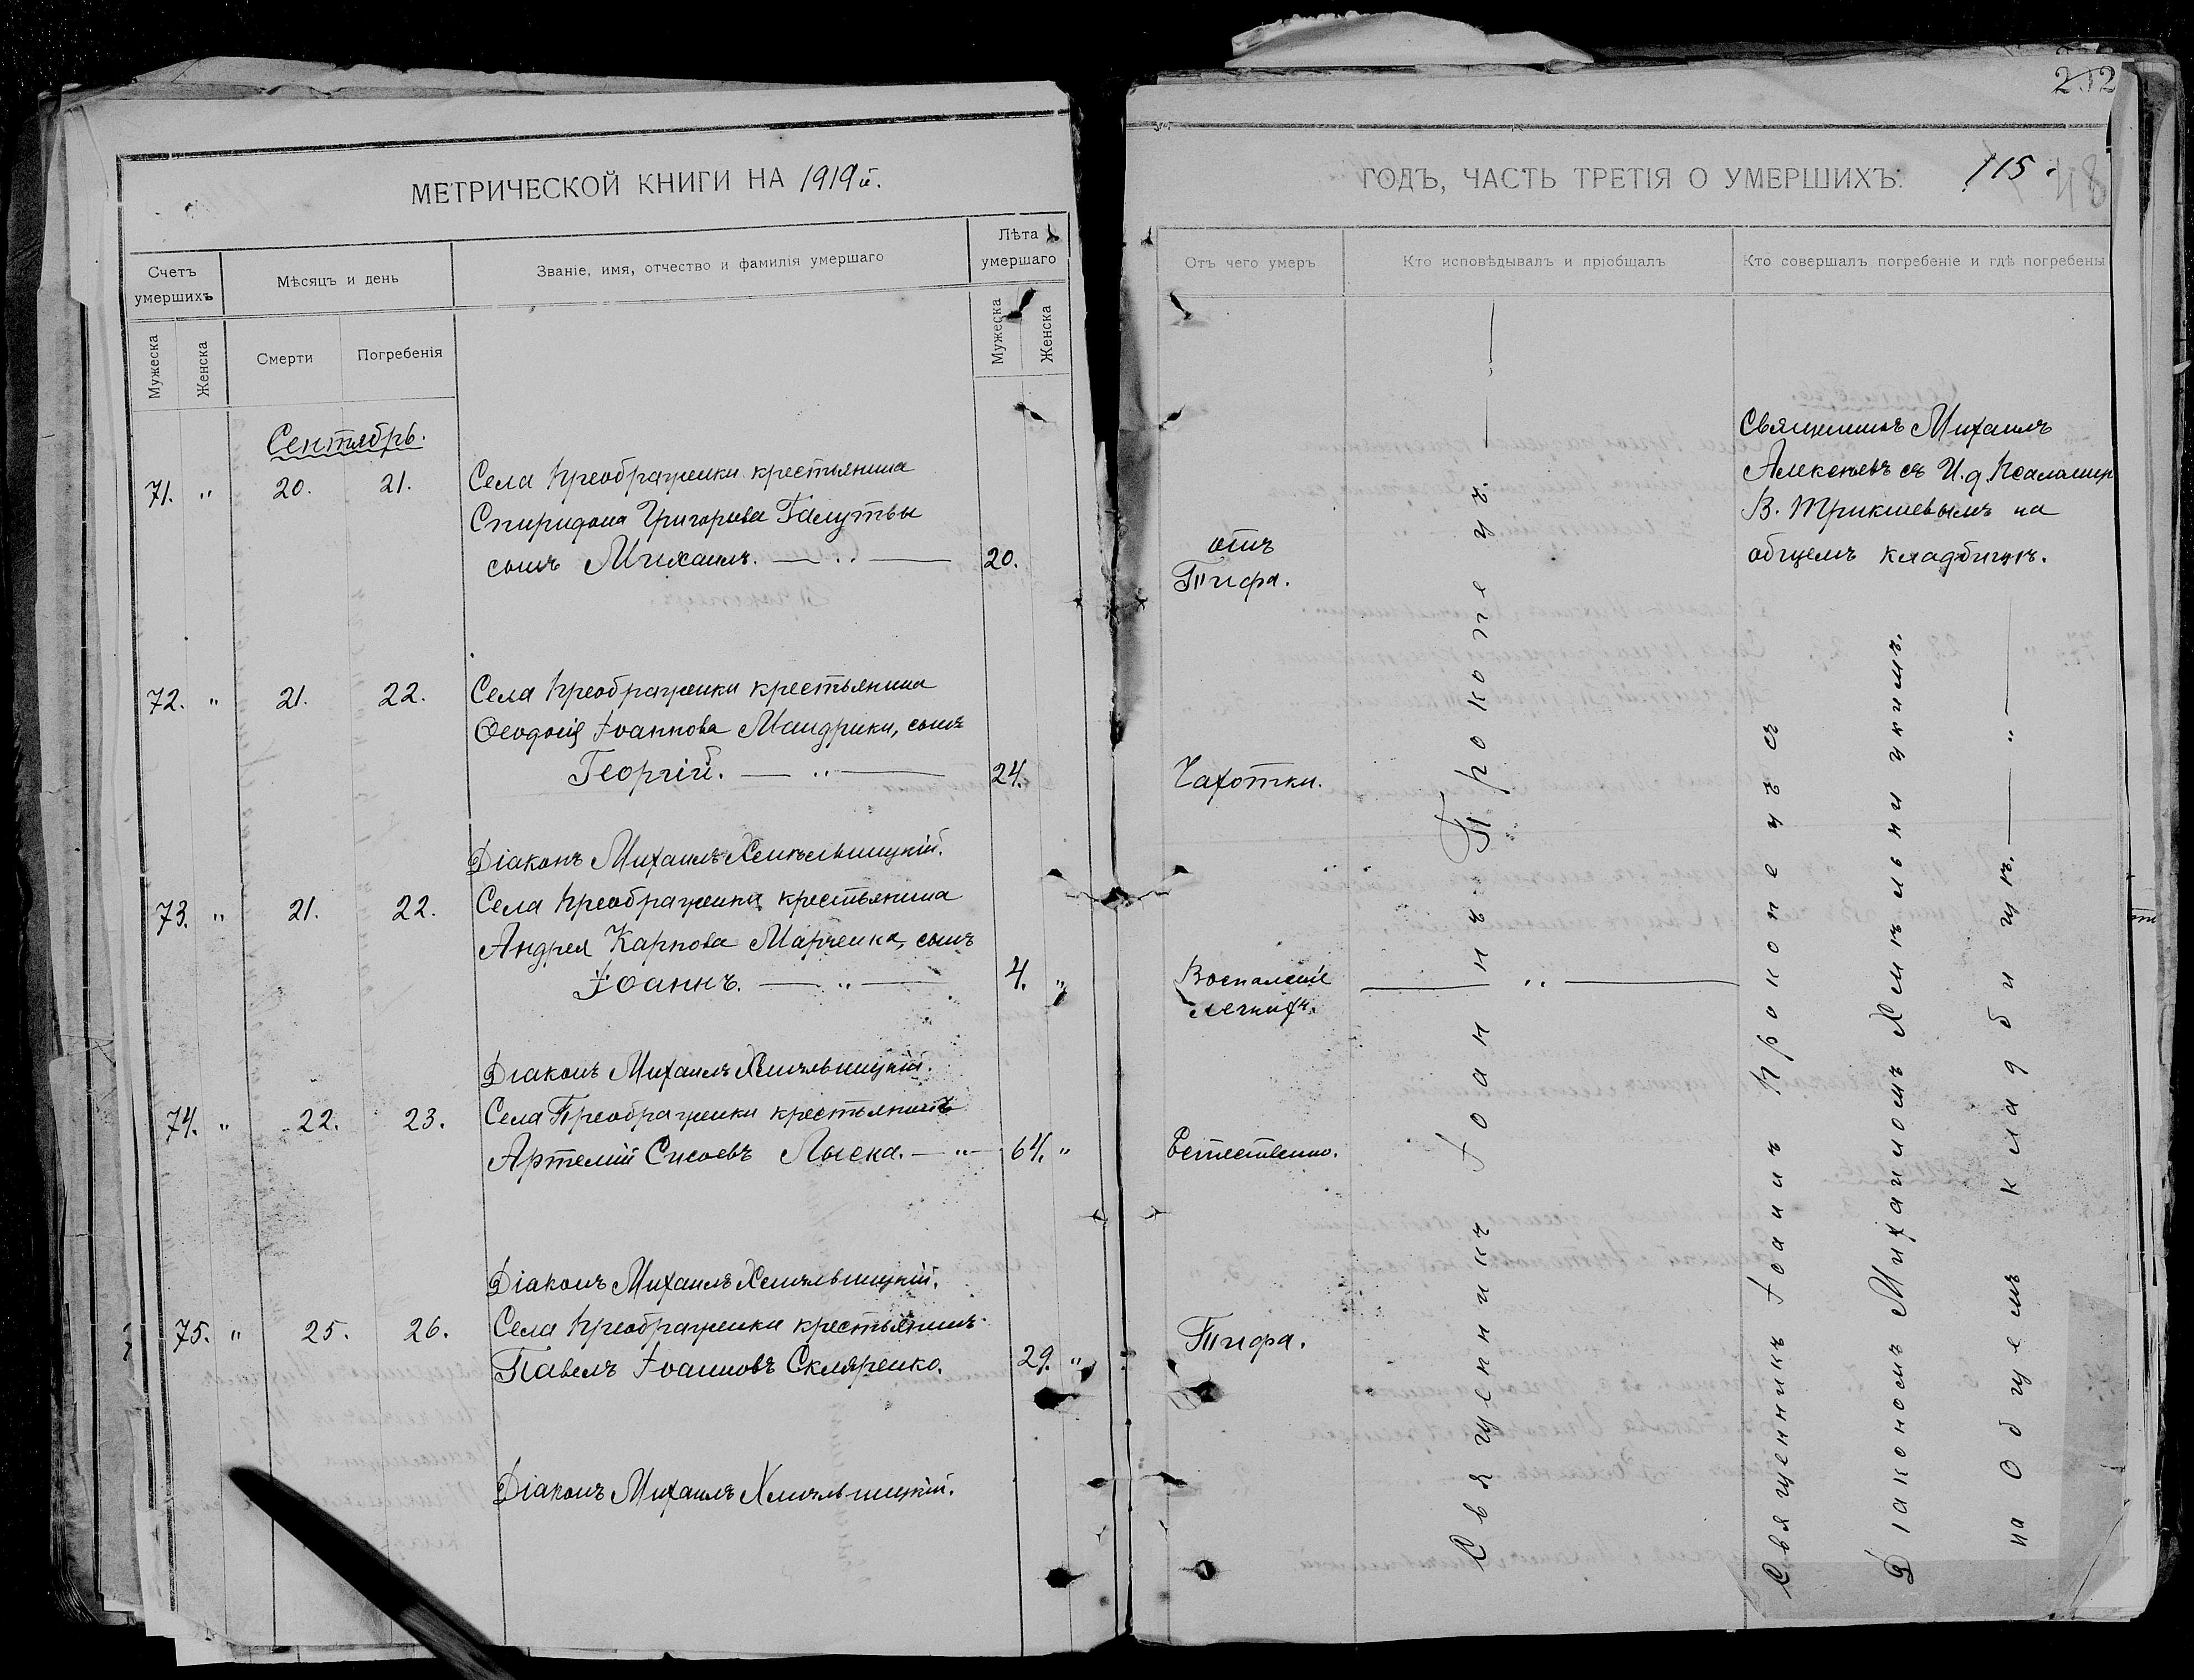 МЕТРИЧЕСКОЙ КНИГИ НА 1919й.
Счетъ умершихъ
Мужеска
Женска
Мѣсяцъ и день
Смерти
Погребенія
Званіе, имя, отчество и фамилія умершаго
Лѣта умершаго
Мужеска
Женска
Сентябрь.
71. " 20. 21. Села Преображенки крестьянина
Спиридона Григорьева Галушвы
сынъ Михаилъ. — " — 20.
72. " 21. 22. Села Преображенки крестьянина
Ѳеодосія Іоаннова Мандрики, сынъ
Георгій. — " — 24.
Діаконъ Михаилъ Хмѣльницкій.
73. " 21. 22. Села Преображенки крестьянина
Андрея Карпова Марченка, сынъ
Іоаннъ. — " — 4. "
Діаконъ Михаилъ Хмѣльницкій.
74. " 22. 23. Села Преображенки крестьянинъ
Артемій Сисоевъ Лыска. — " — 64. "
Діаконъ Михаилъ Хмѣльницкій.
75. " 25. 26. Села Преображенки крестьянинъ
Павелъ Іоанновъ Скляренко. 29. "
Діаконъ Михаилъ Хмѣльницкій.
202
ГОДЪ, ЧАСТЬ ТРЕТІЯ О УМЕРШИХЪ: 115. 48
Отъ чего умеръ
Кто исповѣдывалъ и пріобщалъ
Кто совершалъ погребеніе и гдѣ погребены
отъ
Тифа.
Чахотки.
Воспаленіе
легкихъ.
Естественно.
Тифа.
Священникъ Іоаннъ Прокопецъ.
Священникъ Михаилъ
Алексѣевъ съ И. д. Псаломщ
В. Трикишевымъ на
общемъ кладбищѣ.
Священникъ Іоаннъ Прокопецъ съ
Діакономъ Михаиломъ Хмѣльницкимъ.
на Общемъ кладбищѣ. — " —